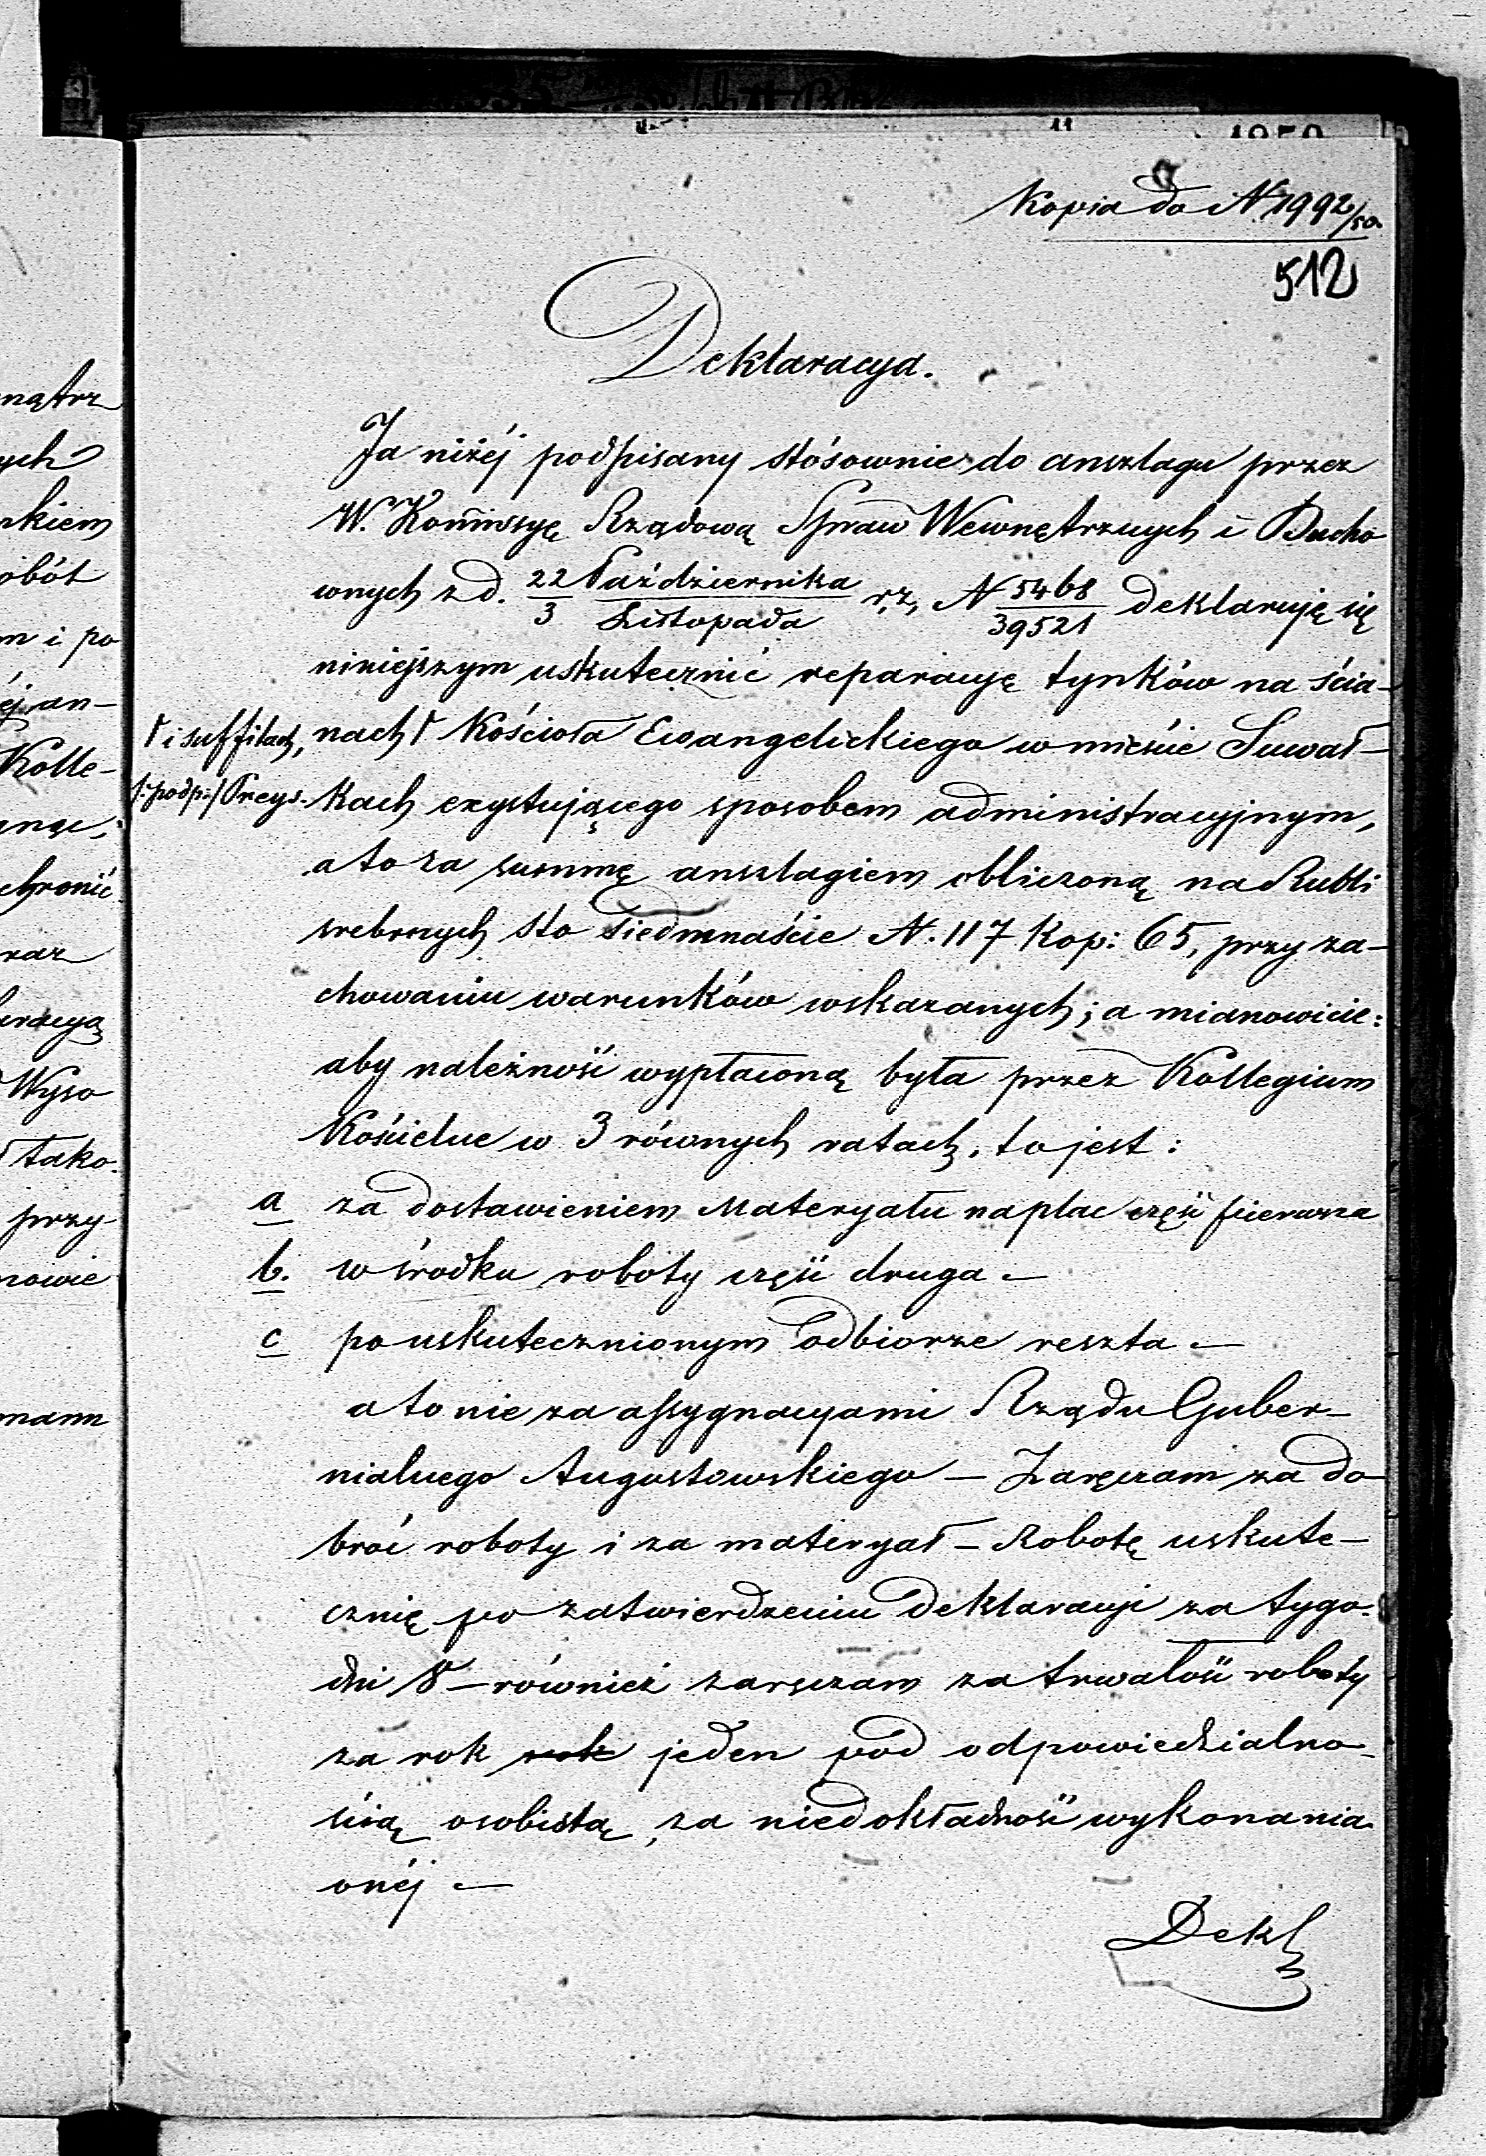 Kopia do N 1992/50.
512
Deklaracya.
Ja niżéj podpisany stósownie do anszlagu przez
W. Kommissyę Rządową Spraw Wewnętrznych i Ducho
wnych z d. 22/3 Października/Listopada r. z. N 5468/39521 deklaruję się
niniejszym uskutecznić reparacyę tynków na ścia-
nach Γ Kościoła Ewangelickiego w mieście Suwał-
Γ i suffitach,
/:podp:/ Preys.
kach exystującego sposobem administracyjnym,
a to za summę anszlagiem obliczoną na Rubli
srebrnych sto siedmnaście N. 117 kop: 65, przy za-
chowaniu warunków wskazanych; a mianowicie:
aby należność wypłaconą była przez Kollegium
Kościelne w 3 równych ratach, to jest:
a za dostawieniem Materyału na plac część pierwsza
b. w środku roboty część druga –
c po uskutecznionym odbiorze reszta –
a to nie za assygnacyami Rządu Guber-
nialnego Augustowskiego – Zaręczam za do-
broć roboty i za materyał – Robotę uskute-
cznię po zatwierdzeniu Deklaracyi za tygo-
dni 8 – również zaręczam za trwałość roboty
za rok rok jeden pod odpowiedzialno-
ścią osobistą, za niedokładność wykonania
onéj –
Dekl
nątrz
ych
nkiem
obót
m i po
éj an-
Kolle-
chronić
raz
Wyso
tako.
przy-
nowie
mann